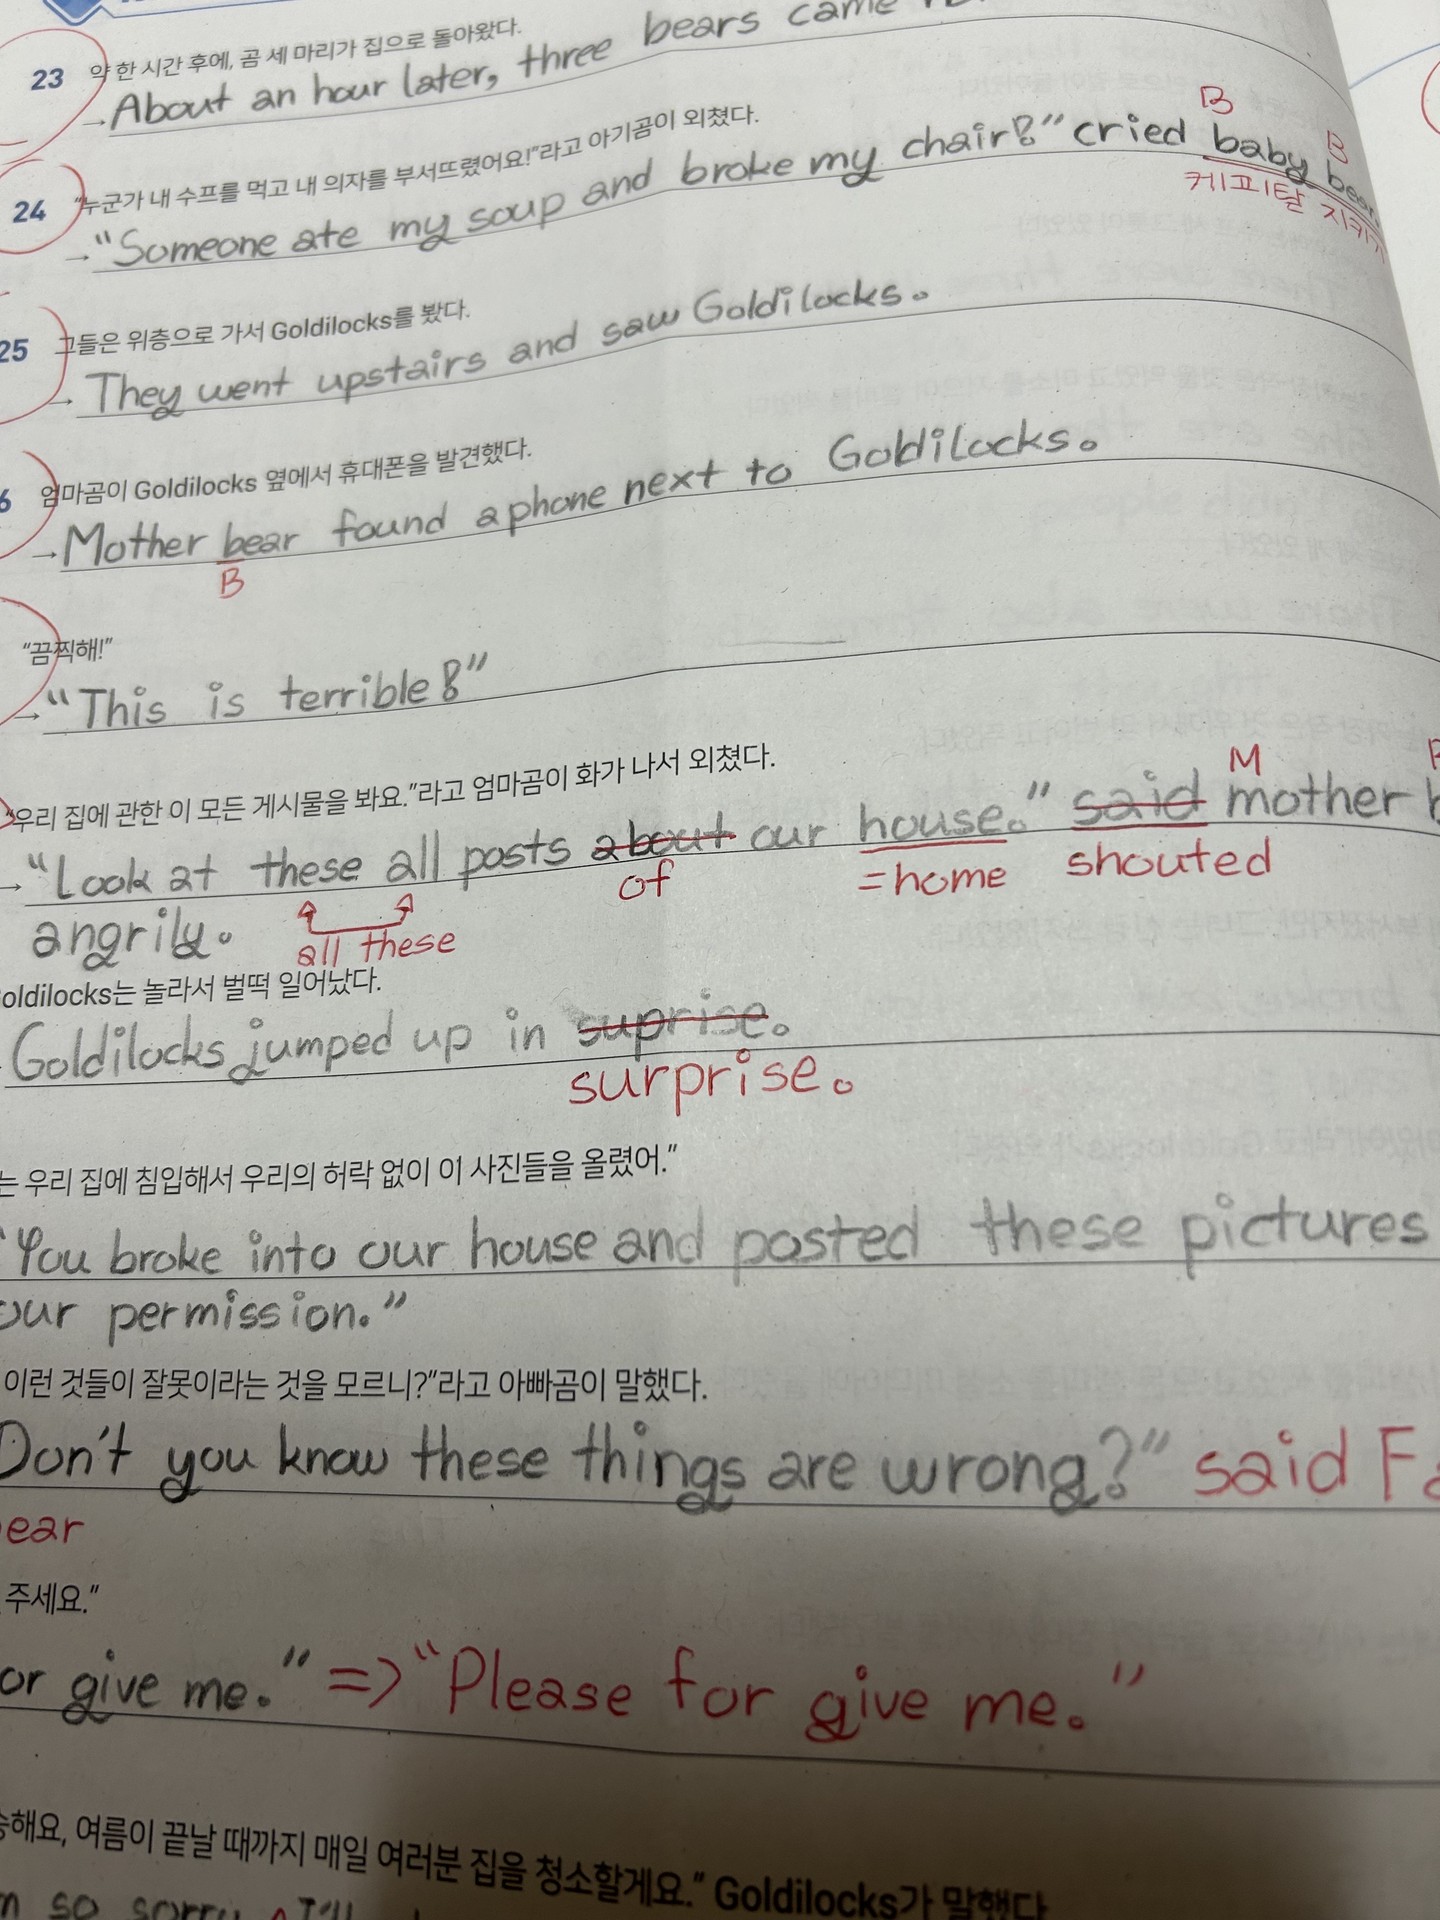 23 약 한 시간 후에, 곰 세 마리가 집으로 돌아왔다.
→ About an hour later, three bears came
24 "누군가 내 수프를 먹고 내 의자를 부서뜨렸어요!"라고 아기곰이 외쳤다.
B B
→ "Someone ate my soup and broke my chair!" cried baby bear.
케피탈 지키기
25 그들은 위층으로 가서 Goldilocks를 봤다.
→ They went upstairs and saw Goldilocks.
6 엄마곰이 Goldilocks 옆에서 휴대폰을 발견했다.
→ Mother bear found a phone next to Goldilocks.
B
"끔찍해!"
→ "This is terrible!"
"우리 집에 관한 이 모든 게시물을 봐요."라고 엄마곰이 화가 나서 외쳤다.
M
→ "Look at these all posts about our house." said mother b
of =home shouted
angrily. all these
oldilocks는 놀라서 벌떡 일어났다.
Goldilocks jumped up in suprise.
surprise.
는 우리 집에 침입해서 우리의 허락 없이 이 사진들을 올렸어."
"You broke into our house and posted these pictures
our permission."
이런 것들이 잘못이라는 것을 모르니?"라고 아빠곰이 말했다.
Don't you know these things are wrong?" said Fa
ear
주세요."
or give me." => "Please for give me."
송해요, 여름이 끝날 때까지 매일 여러분 집을 청소할게요." Goldilocks가 말했다
so sorry I'll